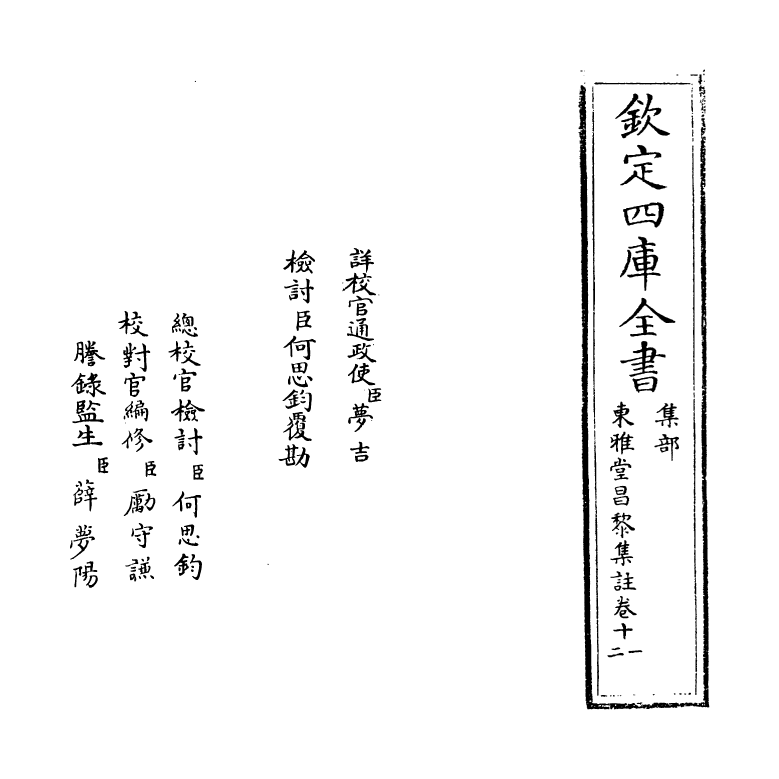 欽定四庫全書
集部
東雅堂昌黎集註卷十一二
詳校官通政使臣夢吉
檢討臣何思鈞覆勘
總校官檢討臣何思鈞
校對官編修臣勵守謙
謄錄監生臣薛夢陽